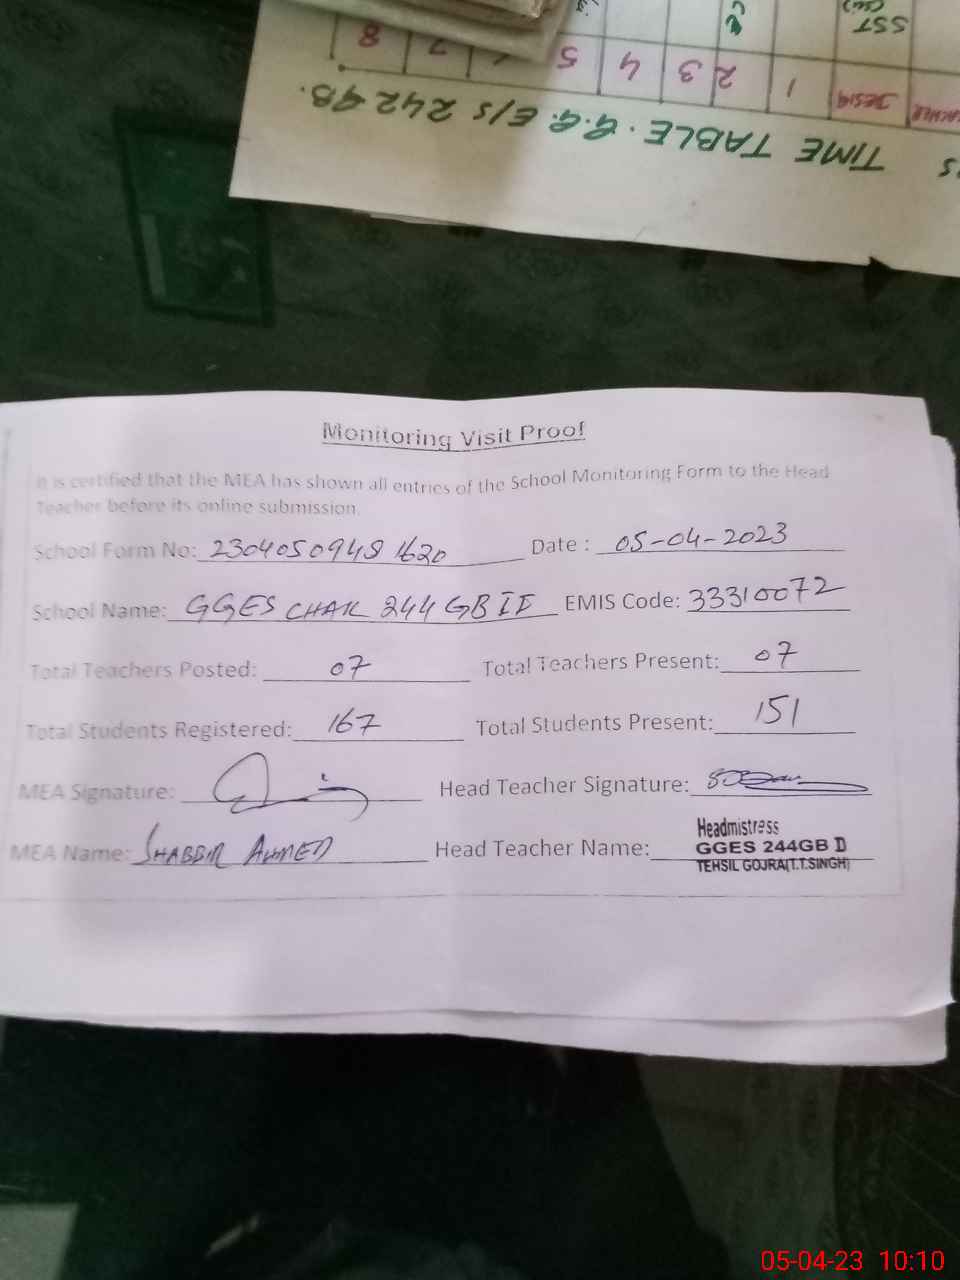 SST
8 7 5 4 3 2 1 DESIG
TIME TABLE. G.G.E/S 242 GB.
Monitoring Visit Proof
It is certified that the MEA has shown all entries of the School Monitoring Form to the Head
Teacher before its online submission.
School Form No: 23040509481620 Date : 05-04-2023
School Name: GGES CHAK 244 GB II EMIS Code: 33310072
Total Teachers Posted: 07 Total Teachers Present: 07
Total Students Registered: 167 Total Students Present: 151
MEA Signature: Head Teacher Signature:
MEA Name: SHABBIR AHMED Head Teacher Name:
Headmistress
GGES 244GB II
TEHSIL GOJRA(T.T.SINGH)
05-04-23 10:10